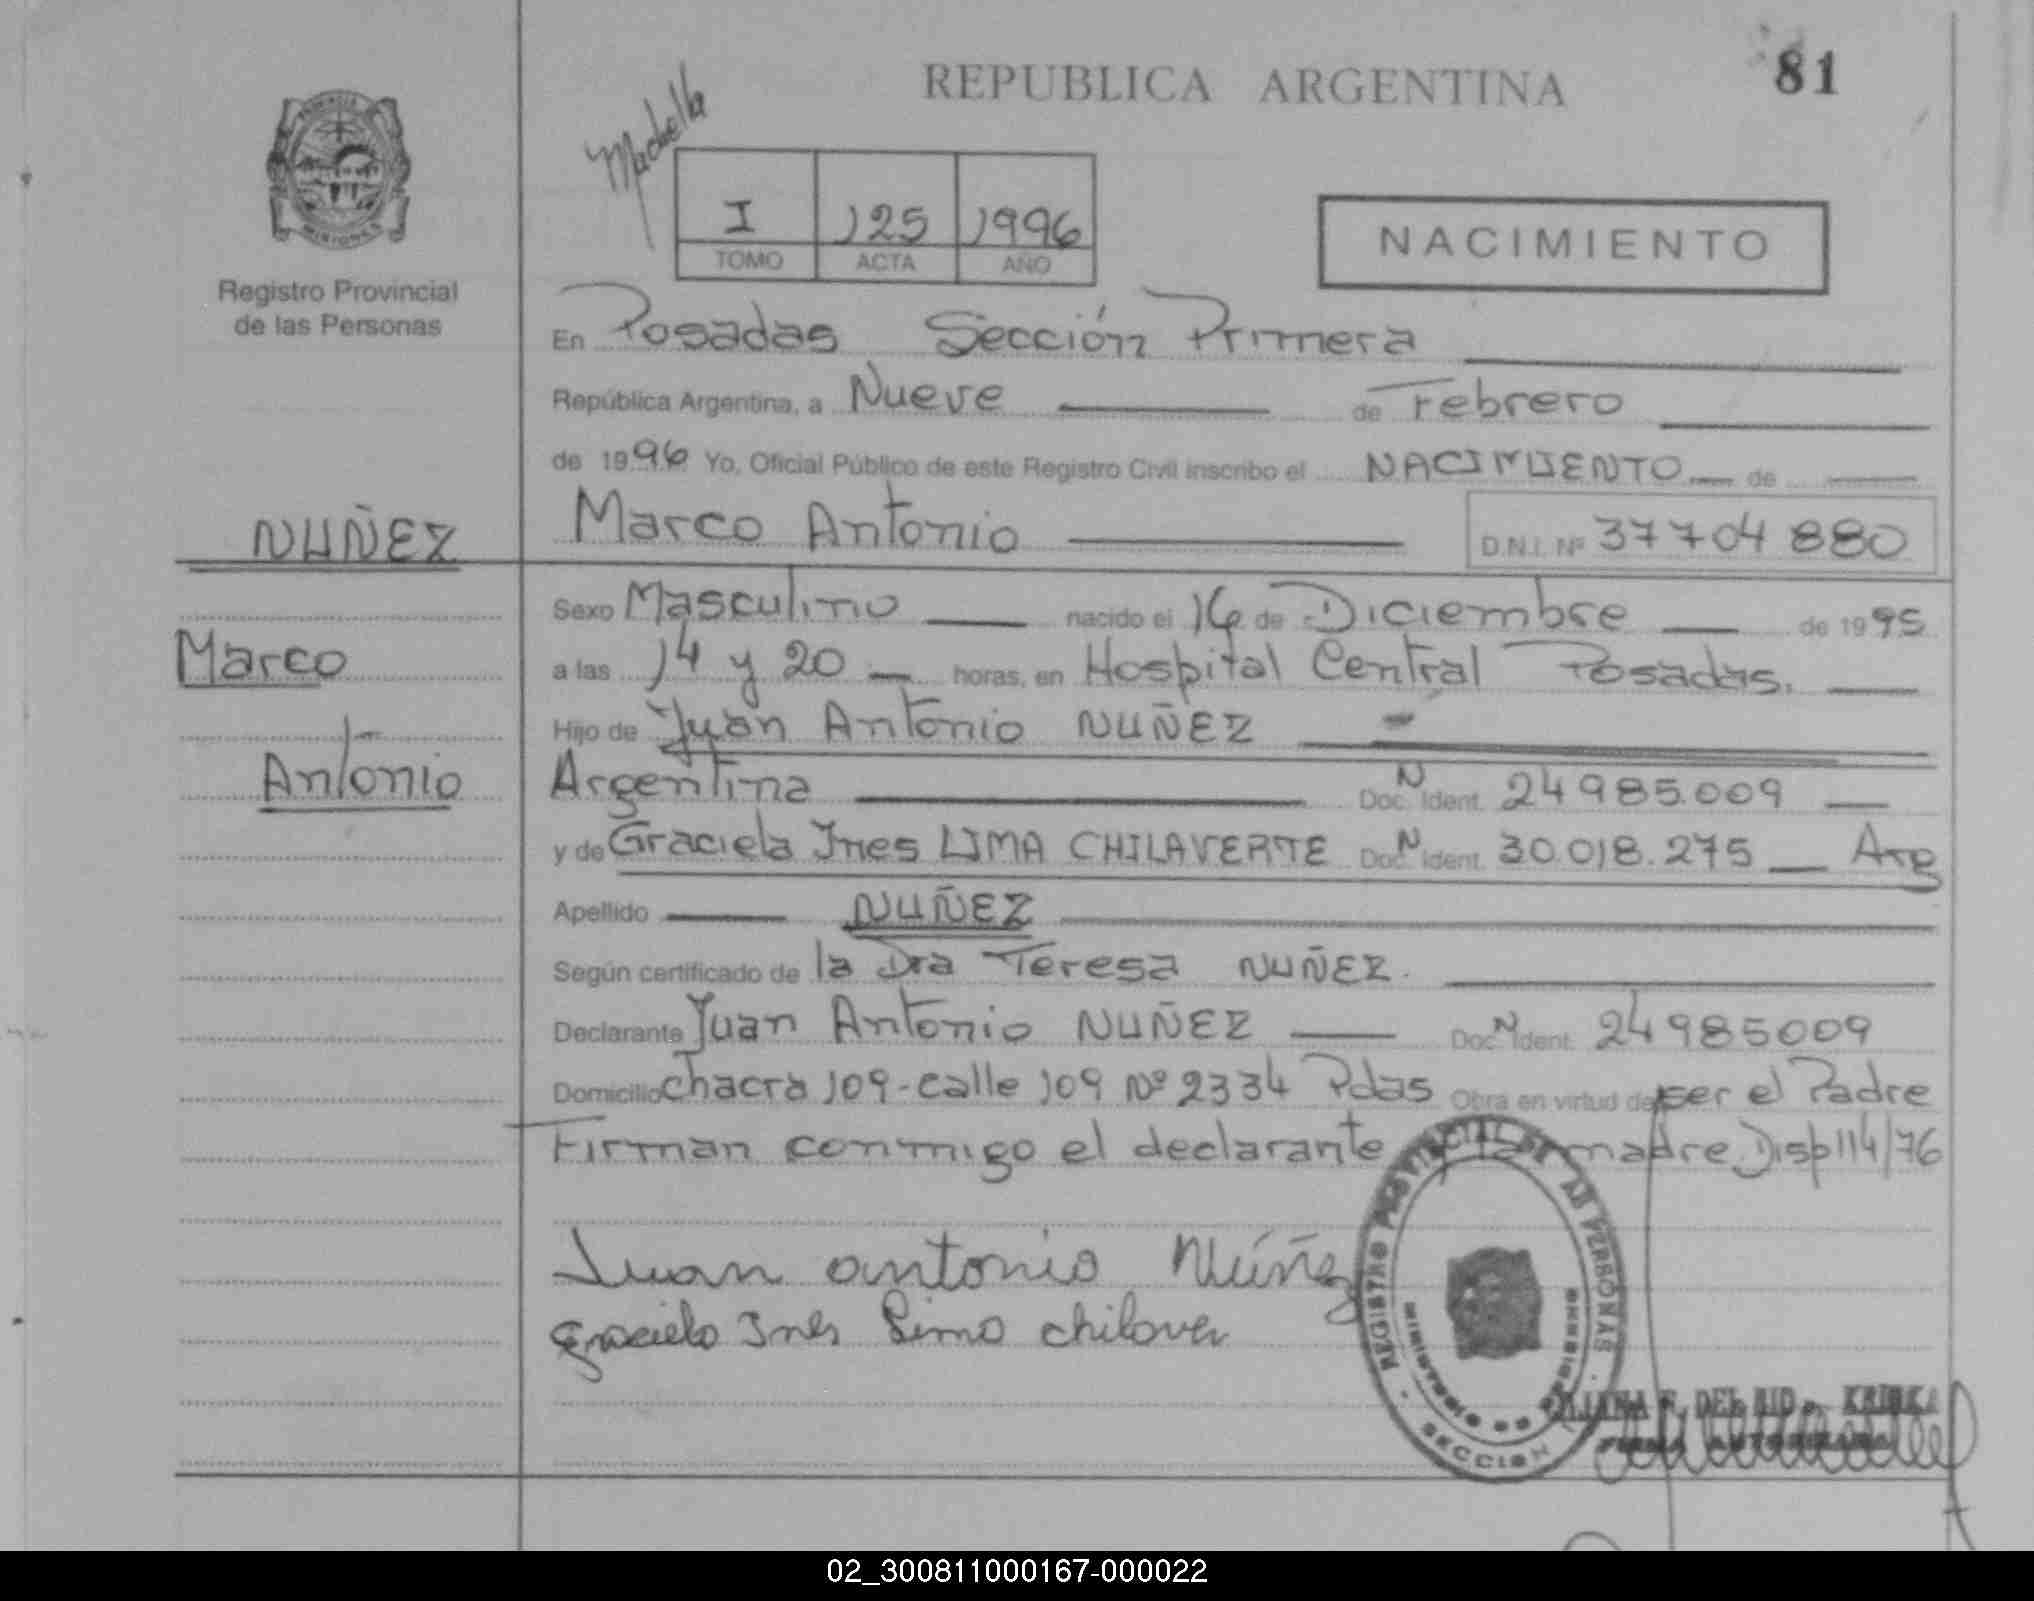 REPUBLICA ARGENTINA
81
I 125 1996
TOMO ACTA AÑO
NACIMIENTO
MISIONES
Registro Provincial
de las Personas
En Posadas Sección Primera
República Argentina, a Nueve de Febrero
de 1996 Yo, Oficial Público de este Registro Civil inscribo el NACIMIENTO de
NUÑEZ
Marco Antonio
D.N.I. Nº 37704880
Sexo Masculino nacido el 16 de Diciembre de 1995
Marco
a las 14 y 20 horas, en Hospital Central Posadas.
Hijo de Juan Antonio NUÑEZ
Antonio
Argentina Doc. N Ident. 24985.009
y de Graciela Ines LIMA CHILAVERTE Doc. N Ident. 30.018.275 Arg
Apellido NUÑEZ
Según certificado de la Dra Teresa NUÑEZ.
Declarante Juan Antonio NUÑEZ Doc. N Ident. 24985009
Domicilio chacra 109-calle 109 Nº 2334 Pdas Obra en virtud de ser el Padre
Firman conmigo el declarante y la madre Disp 114/76
Juan antonio Núñez
Graciela Ines Lima chilaver
REGISTRO PROVINCIAL DE LAS PERSONAS
MINISTERIO DE GOBIERNO
SECCION
DEL RIO
02_300811000167-000022